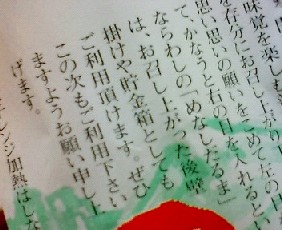 味覚を楽しも
を存分にお召し上がり
思い思いの願いをこめて左の目
て、かなうと右の目を入れるとい
ならわしの「めなしだるま」
は、お召し上がった後壁
掛けや貯金箱としても
ご利用頂けます。ぜひ
この次もご利用下さい
ますようお願い申し上
げます。
レンジ加熱はしな